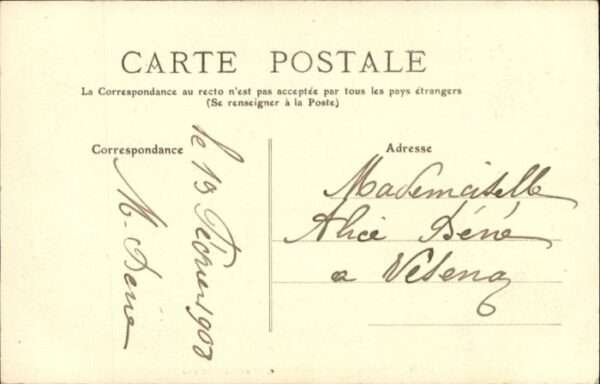 CARTE POSTALE
La Correspondance au recto n'est pas acceptée par tous les pays étrangers
(Se renseigner à la Poste)
Correspondance
le 13 Février 1908
M. Déné
Adresse
Mademoiselle
Alice Déné
a Veseno